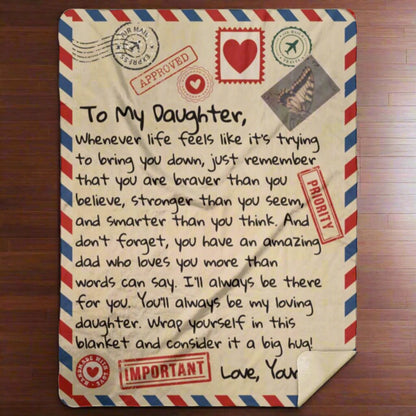 AIR MAIL
EXPRESS
APPROVED
To My Daughter,
Whenever life feels like it's trying
to bring you down, just remember
that you are braver than you
believe, stronger than you seem,
and smarter than you think. And
don't forget, you have an amazing
dad who loves you more than
words can say. I'll always be there
for you. You'll always be my loving
daughter. Wrap yourself in this
blanket and consider it a big hug!
PRIORITY
IMPORTANT
Love, Your